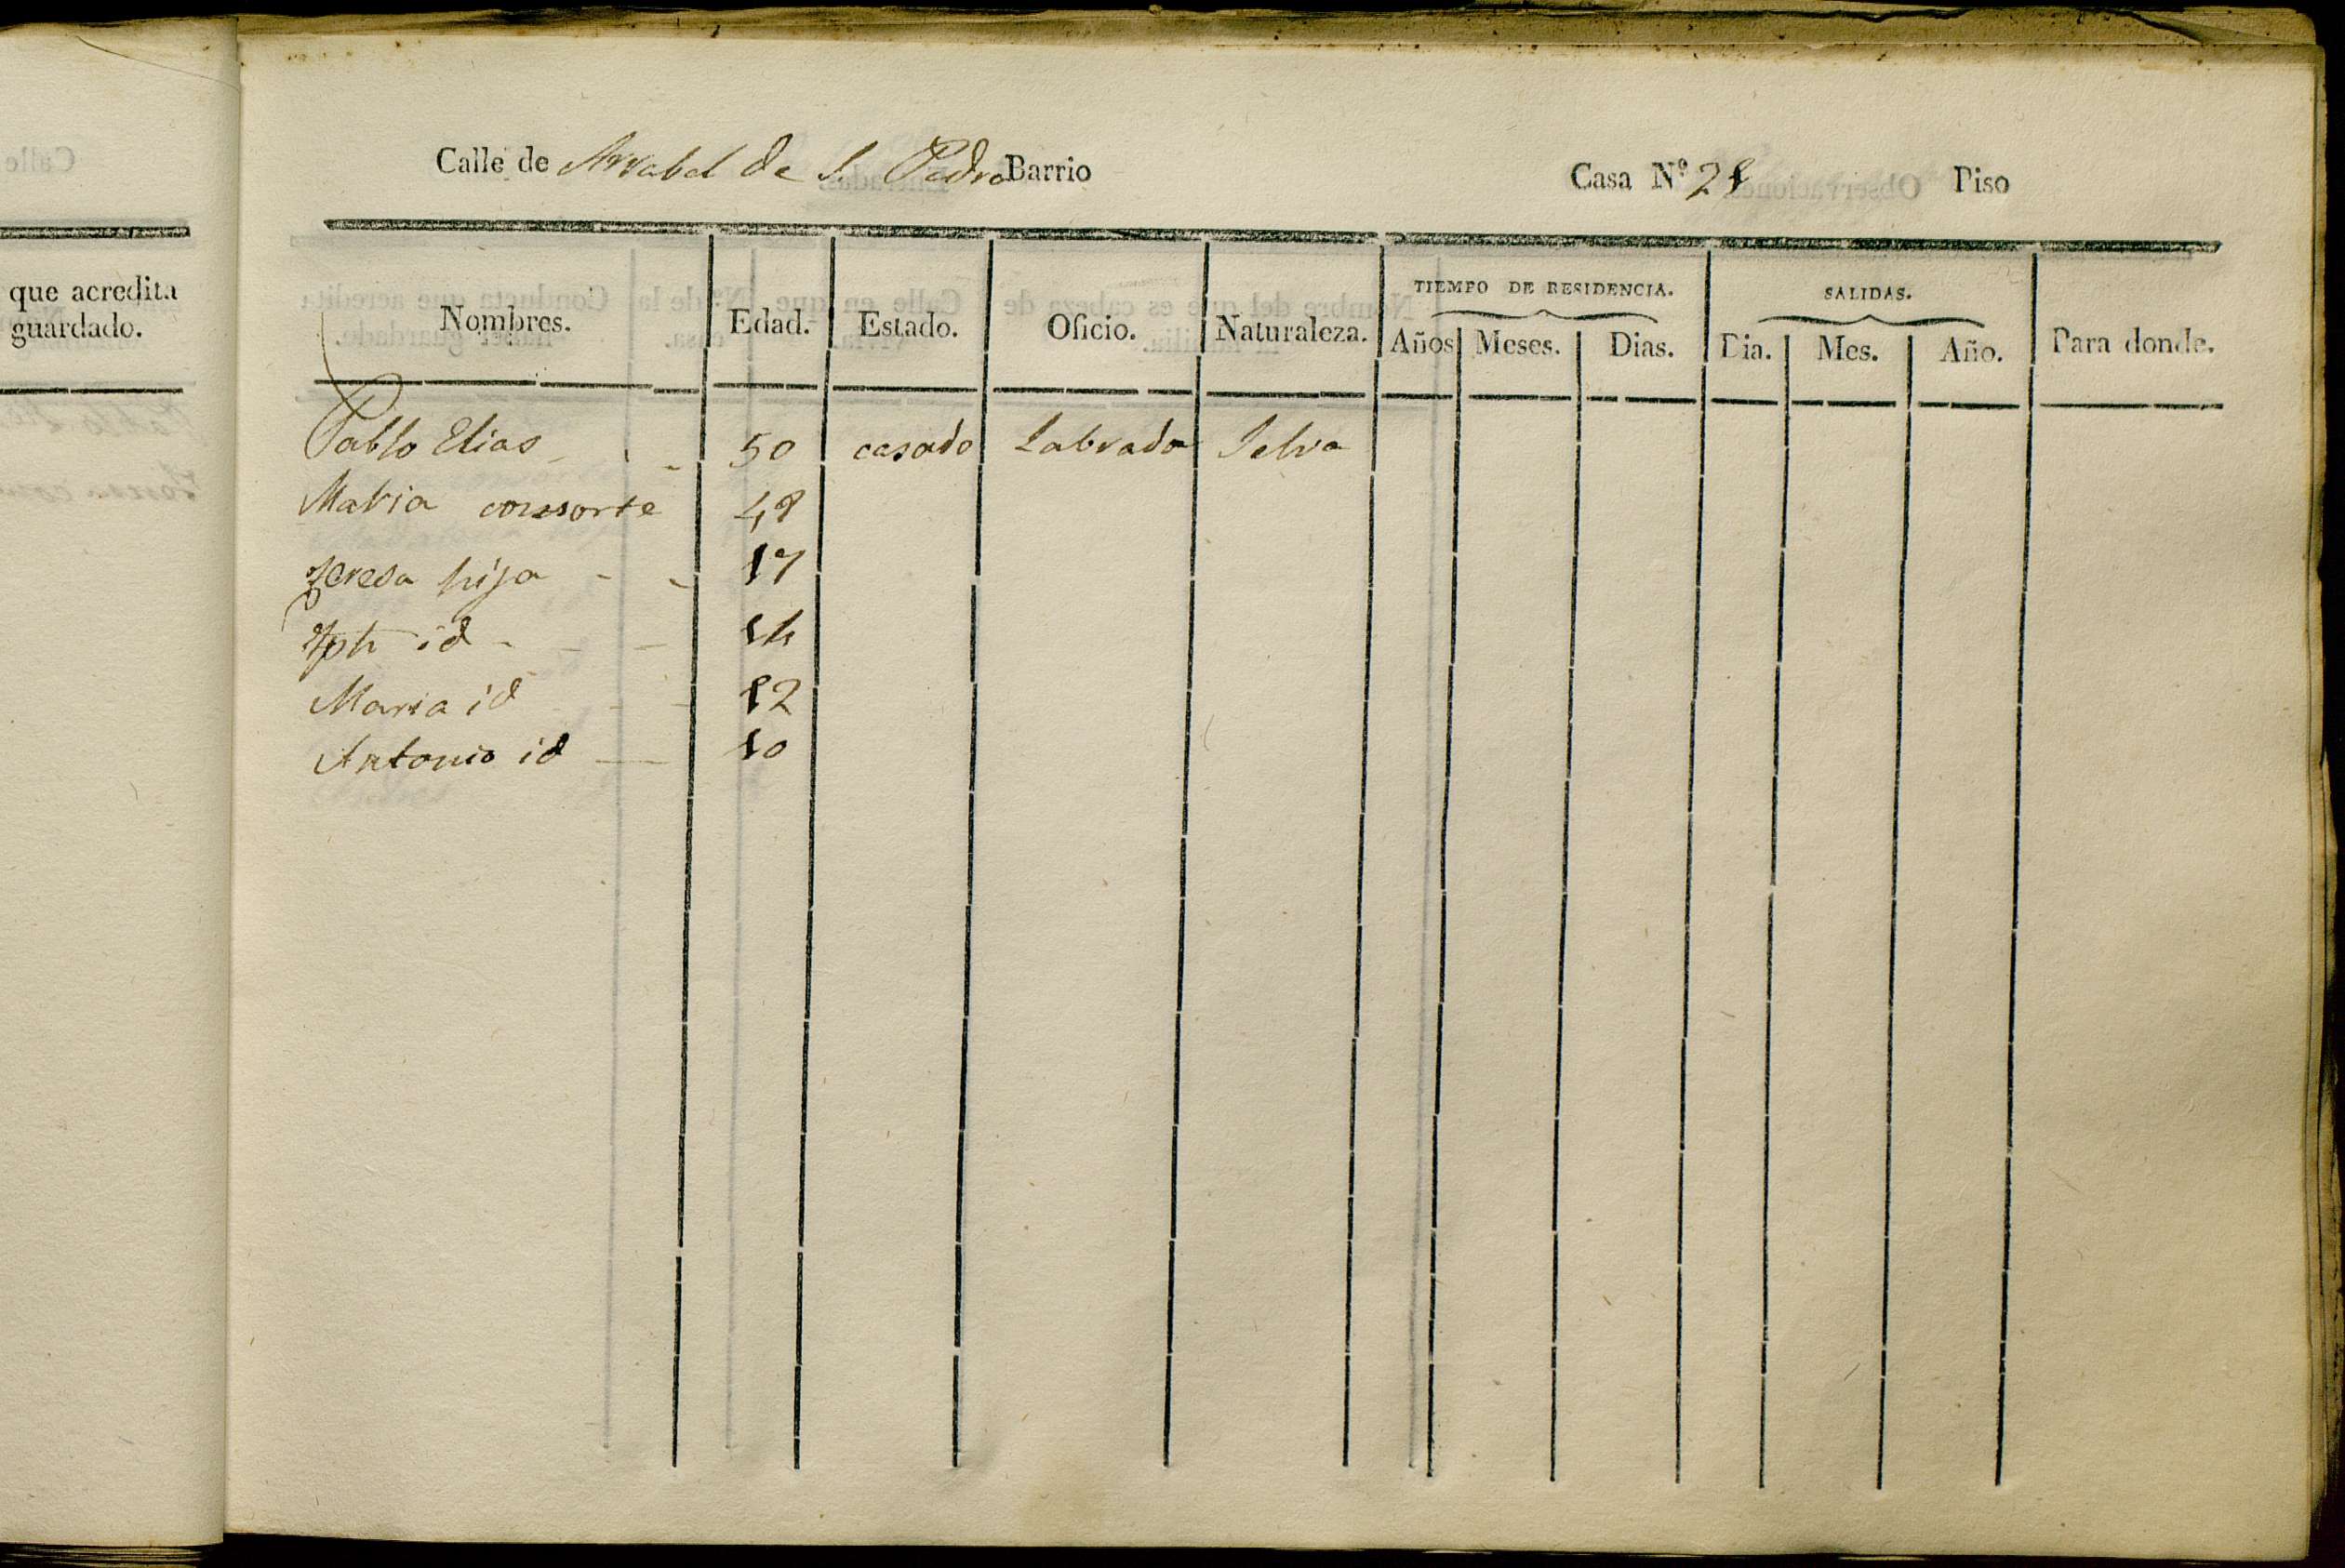 que acredita
guardado.
Calle de Arrabal de S. Pedro Barrio Casa Nº 21 Piso
Nombres. Edad. Estado. Oficio. Naturaleza. TIEMPO DE RESIDENCIA. SALIDAS. Para donde.
Años Meses. Dias. Dia. Mes. Año.
Pablo Elias 50 casado Labrador Selva
Maria consorte 48
Teresa hija 17
Jph id 14
Maria id 12
Antonio id 10